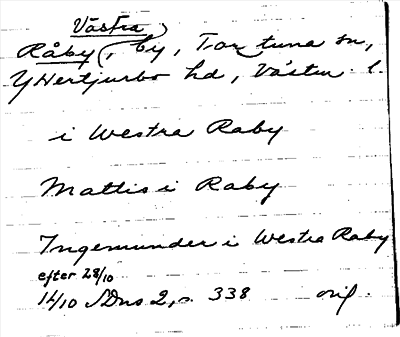 Västra
Råby, by, Tortuna sn,
Y Tjurbo hd, Västm. l.
i Westra Raby
Mattis i Raby
Ingemunder i Westra Raby
efter 28/10
1410 SDns 2, s. 338 orig.